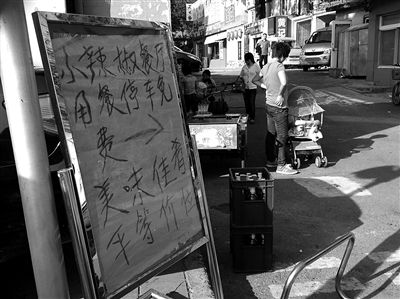 小辣椒餐厅
用餐停车免
费→
美味佳肴
平等价位